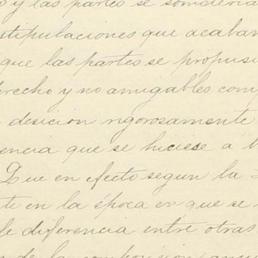 y las partes se
stipulaciones que acaba
que las partes se propusi
derecho y no amigables com
desicion rigorosamente
encia que se hiciese a
Que en efecto segun la
te en la época en que se
de diferencia entre otras